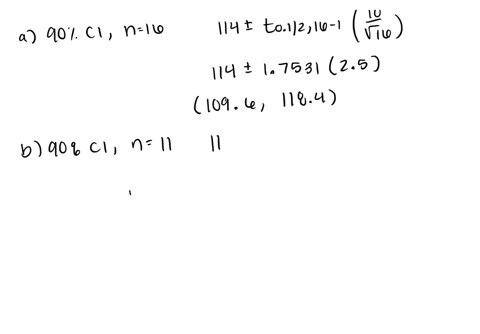 a) 90% CI, n=16 114 ± t0.1/2, 16-1 (10/√16)
114 ± 1.7531 (2.5)
(109.6, 118.4)
b) 908 CI, n= 11 11